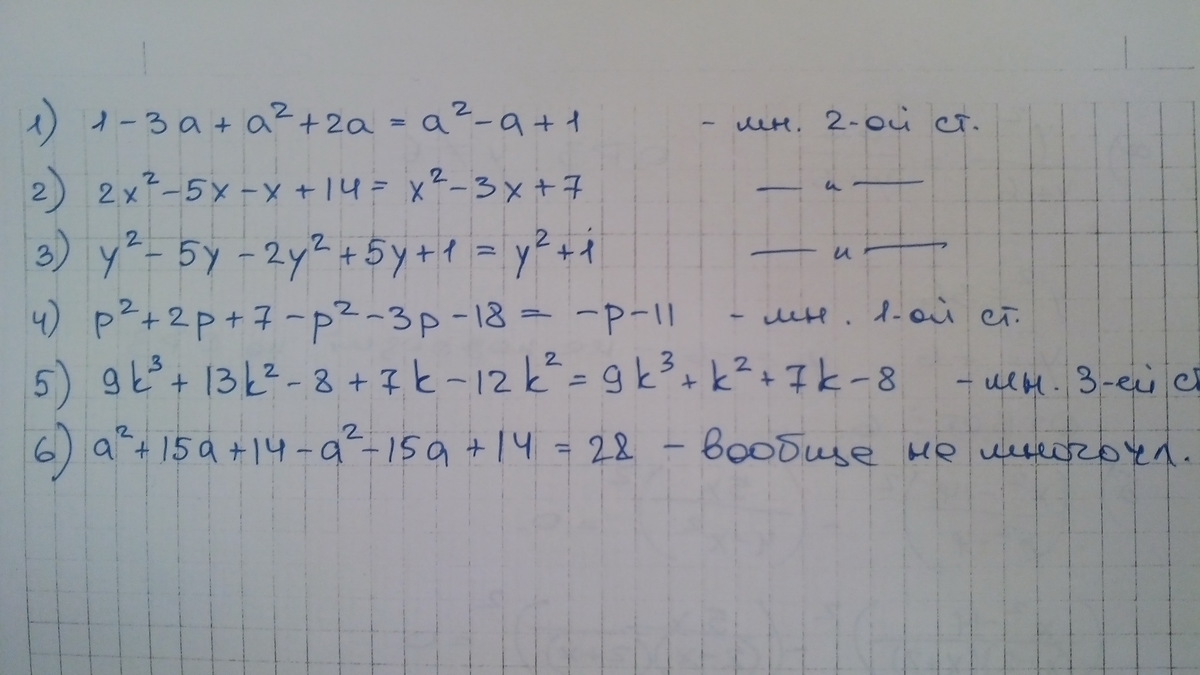 1) 1 - 3a + a² + 2a = a² - a + 1 - мн. 2-ой ст.
2) 2x² - 5x - x + 14 = x² - 3x + 7 — и —
3) y² - 5y - 2y² + 5y + 1 = y² + 1 — и —
4) p² + 2p + 7 - p² - 3p - 18 = -p - 11 - мн. 1-ой ст.
5) 9k³ + 13k² - 8 + 7k - 12k² = 9k³ + k² + 7k - 8 - мн. 3-ей ст
6) a² + 15a + 14 - a² - 15a + 14 = 28 - вообще не многочл.